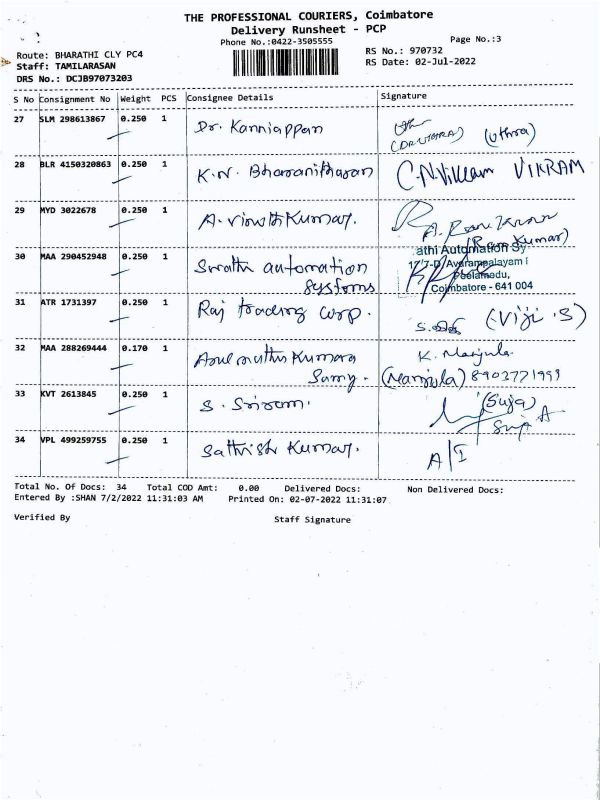 THE PROFESSIONAL COURIERS, Coimbatore
Delivery Runsheet - PCP
Phone No.:0422-3505555
Page No.:3
Route: BHARATHI CLY PC4
RS No.: 970732
Staff: TAMILARASAN
RS Date: 02-Jul-2022
DRS No.: DCJB97073203
S No Consignment No Weight PCS Consignee Details Signature
27 SLM 298613867 0.250 1 Dr. Kanniappan (Uthra)
(DR.UTHRA)
28 BLR 4150320863 0.250 1 K.N. Bharanitharan C.N.Vikram VIKRAM
29 MYD 3022678 0.250 1 A. Vinoth Kumar.
(Ram Kumar)
30 MAA 290452948 0.250 1 Swathi automation
Systems
athi Automation Sy
17/7-D, Avarampalayam
Peelamedu,
Coimbatore - 641 004
31 ATR 1731397 0.250 1 Raj trading Corp. (Viji .S)
32 MAA 288269444 0.170 1 Arulmuthu Kumara
Samy.
K. Manjula
(Manjula) 8903771993
33 KVT 2613845 0.250 1 S. Sriram. (Suja)
Suja A
34 VPL 499259755 0.250 1 Sathish Kumar. A/I
Total No. Of Docs: 34 Total COD Amt: 0.00 Delivered Docs: Non Delivered Docs:
Entered By :SHAN 7/2/2022 11:31:03 AM Printed On: 02-07-2022 11:31:07
Verified By Staff Signature